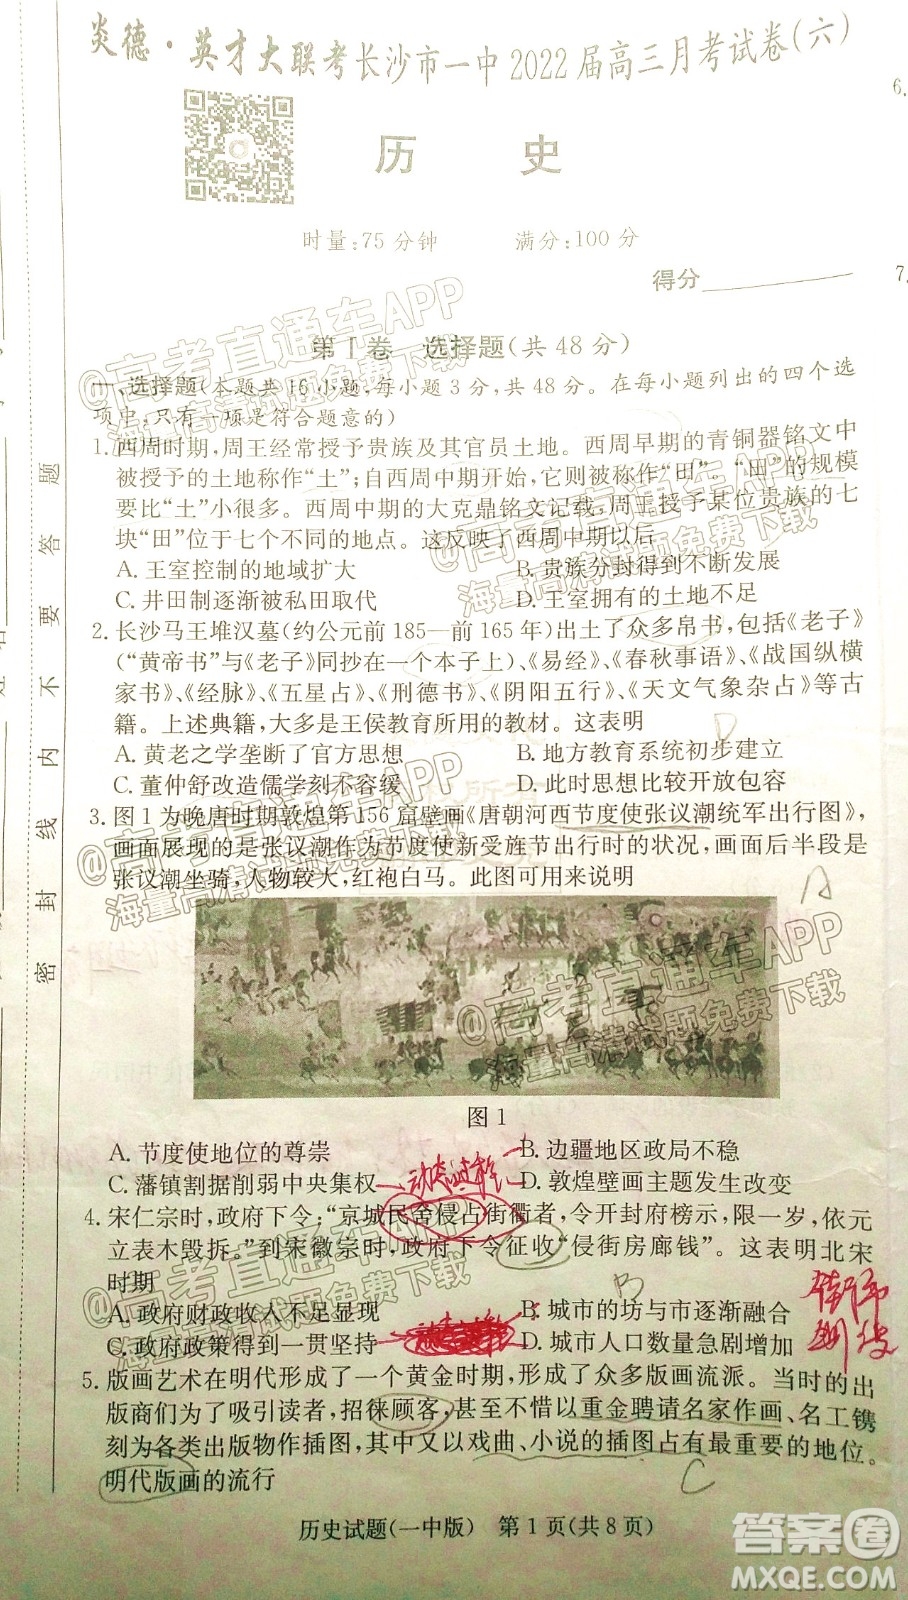 炎德·英才大联考长沙市一中2022届高三月考试卷(六)
历 史
时量:75分钟 满分:100分
得分
第Ⅰ卷 选择题(共48分)
一、选择题(本题共16小题,每小题3分,共48分。在每小题列出的四个选
项中,只有一项是符合题意的)
1.西周时期,周王经常授予贵族及其官员土地。西周早期的青铜器铭文中
被授予的土地称作“土”;自西周中期开始,它则被称作“田”,“田”的规模
要比“土”小很多。西周中期的大克鼎铭文记载,周王授予某位贵族的七
块“田”位于七个不同的地点。这反映了西周中期以后
A.王室控制的地域扩大 B.贵族分封得到不断发展
C.井田制逐渐被私田取代 D.王室拥有的土地不足
2.长沙马王堆汉墓(约公元前185—前165年)出土了众多帛书,包括《老子》
(“黄帝书”与《老子》同抄在一个本子上)、《易经》、《春秋事语》、《战国纵横
家书》、《经脉》、《五星占》、《刑德书》、《阴阳五行》、《天文气象杂占》等古
籍。上述典籍,大多是王侯教育所用的教材。这表明
D
A.黄老之学垄断了官方思想 B.地方教育系统初步建立
C.董仲舒改造儒学刻不容缓 D.此时思想比较开放包容
3.图1为晚唐时期敦煌第156窟壁画《唐朝河西节度使张议潮统军出行图》,
画面展现的是张议潮作为节度使新受旌节出行时的状况,画面后半段是
张议潮坐骑,人物较大,红袍白马。此图可用来说明
A
图1
A.节度使地位的尊崇 B.边疆地区政局不稳
C.藩镇割据削弱中央集权 D.敦煌壁画主题发生改变
4.宋仁宗时,政府下令:“京城民舍侵占街衢者,令开封府榜示,限一岁,依元
立表木毁拆。”到宋徽宗时,政府下令征收“侵街房廊钱”。这表明北宋
时期
B
A.政府财政收入不足显现 B.城市的坊与市逐渐融合
C.政府政策得到一贯坚持 D.城市人口数量急剧增加
5.版画艺术在明代形成了一个黄金时期,形成了众多版画流派。当时的出
版商们为了吸引读者,招徕顾客,甚至不惜以重金聘请名家作画、名工镌
刻为各类出版物作插图,其中又以戏曲、小说的插图占有最重要的地位。
明代版画的流行
C
历史试题(一中版) 第1页(共8页)
密封线内不要答题
6.
7.
@高考直通车APP
海量高清试题免费下载
@高考直通车APP
海量高清试题免费下载
@高考直通车APP
海量高清试题免费下载
@高考直通车APP
海量高清试题免费下载
@高考直通车APP
海量高清试题免费下载
答案圈
MXQE.COM